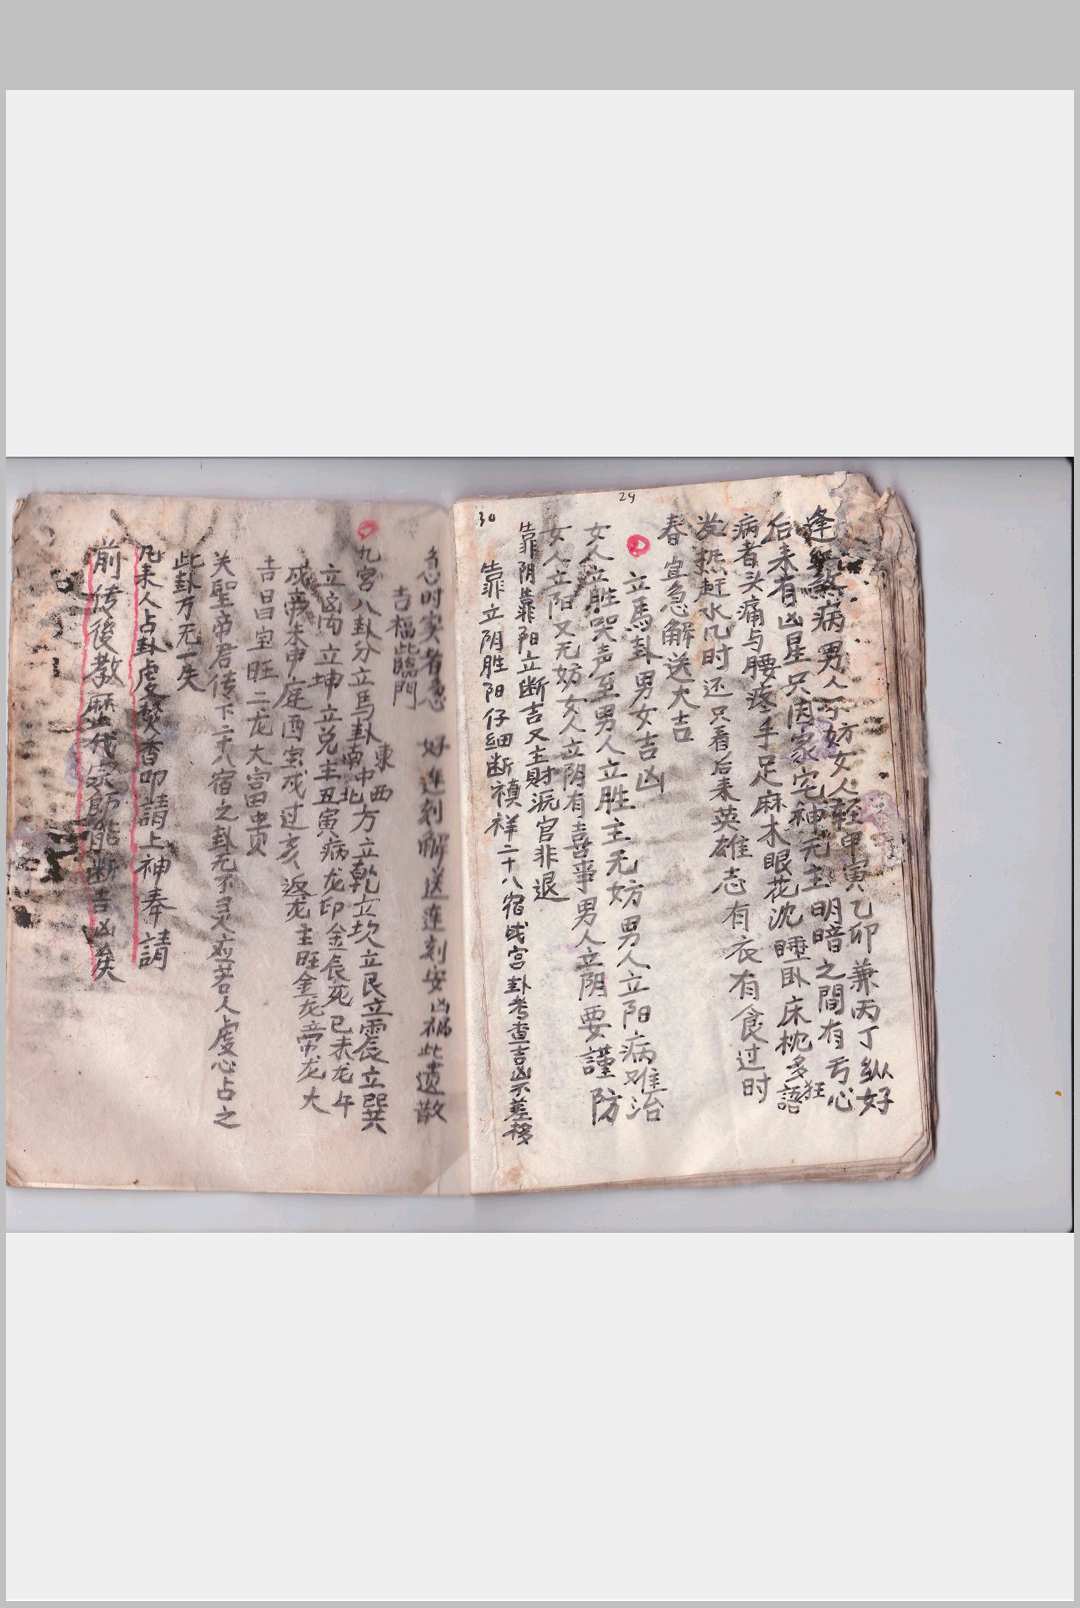 29
逢煞病男人才妨女人轻甲寅乙卯兼丙丁纵好
后来有凶星只因家宅神无主明暗之間有亏心
病者头痛与腰疼手足麻木眼花沈睡卧床枕多狂語
燃赶水几时还只看后来英雄志有衣有食过时
春宜急解送大吉
立馬卦男女吉凶
女人立胜哭声至男人立胜主无妨男人立阳病难治
女人立阳又无妨女人立阴有喜事男人立阴要謹防
靠阴靠阳立断吉又主財沅官非退
靠立阴胜阳仔細断禎祥二十八宿成宫卦考查吉凶不差移
30
急时实者急 好连刻解送连刻安凶祸此遗散
吉福此臨門
九宮八卦分立馬卦東南中西北方立乾立坎立艮立震立巽
立离立坤立兑主丑寅病龙印金辰死巳未龙午
戍帝未申庭酉宝戍过亥返龙主旺金龙帝龙大
吉昌宝旺二龙大宫田貴
关聖帝君传下二十八宿之卦无不灵应若人虔心占之
此卦万无一失
凡来人占卦虔焚香叩請上神奉請
前传後教歷代宗師能断吉凶矣